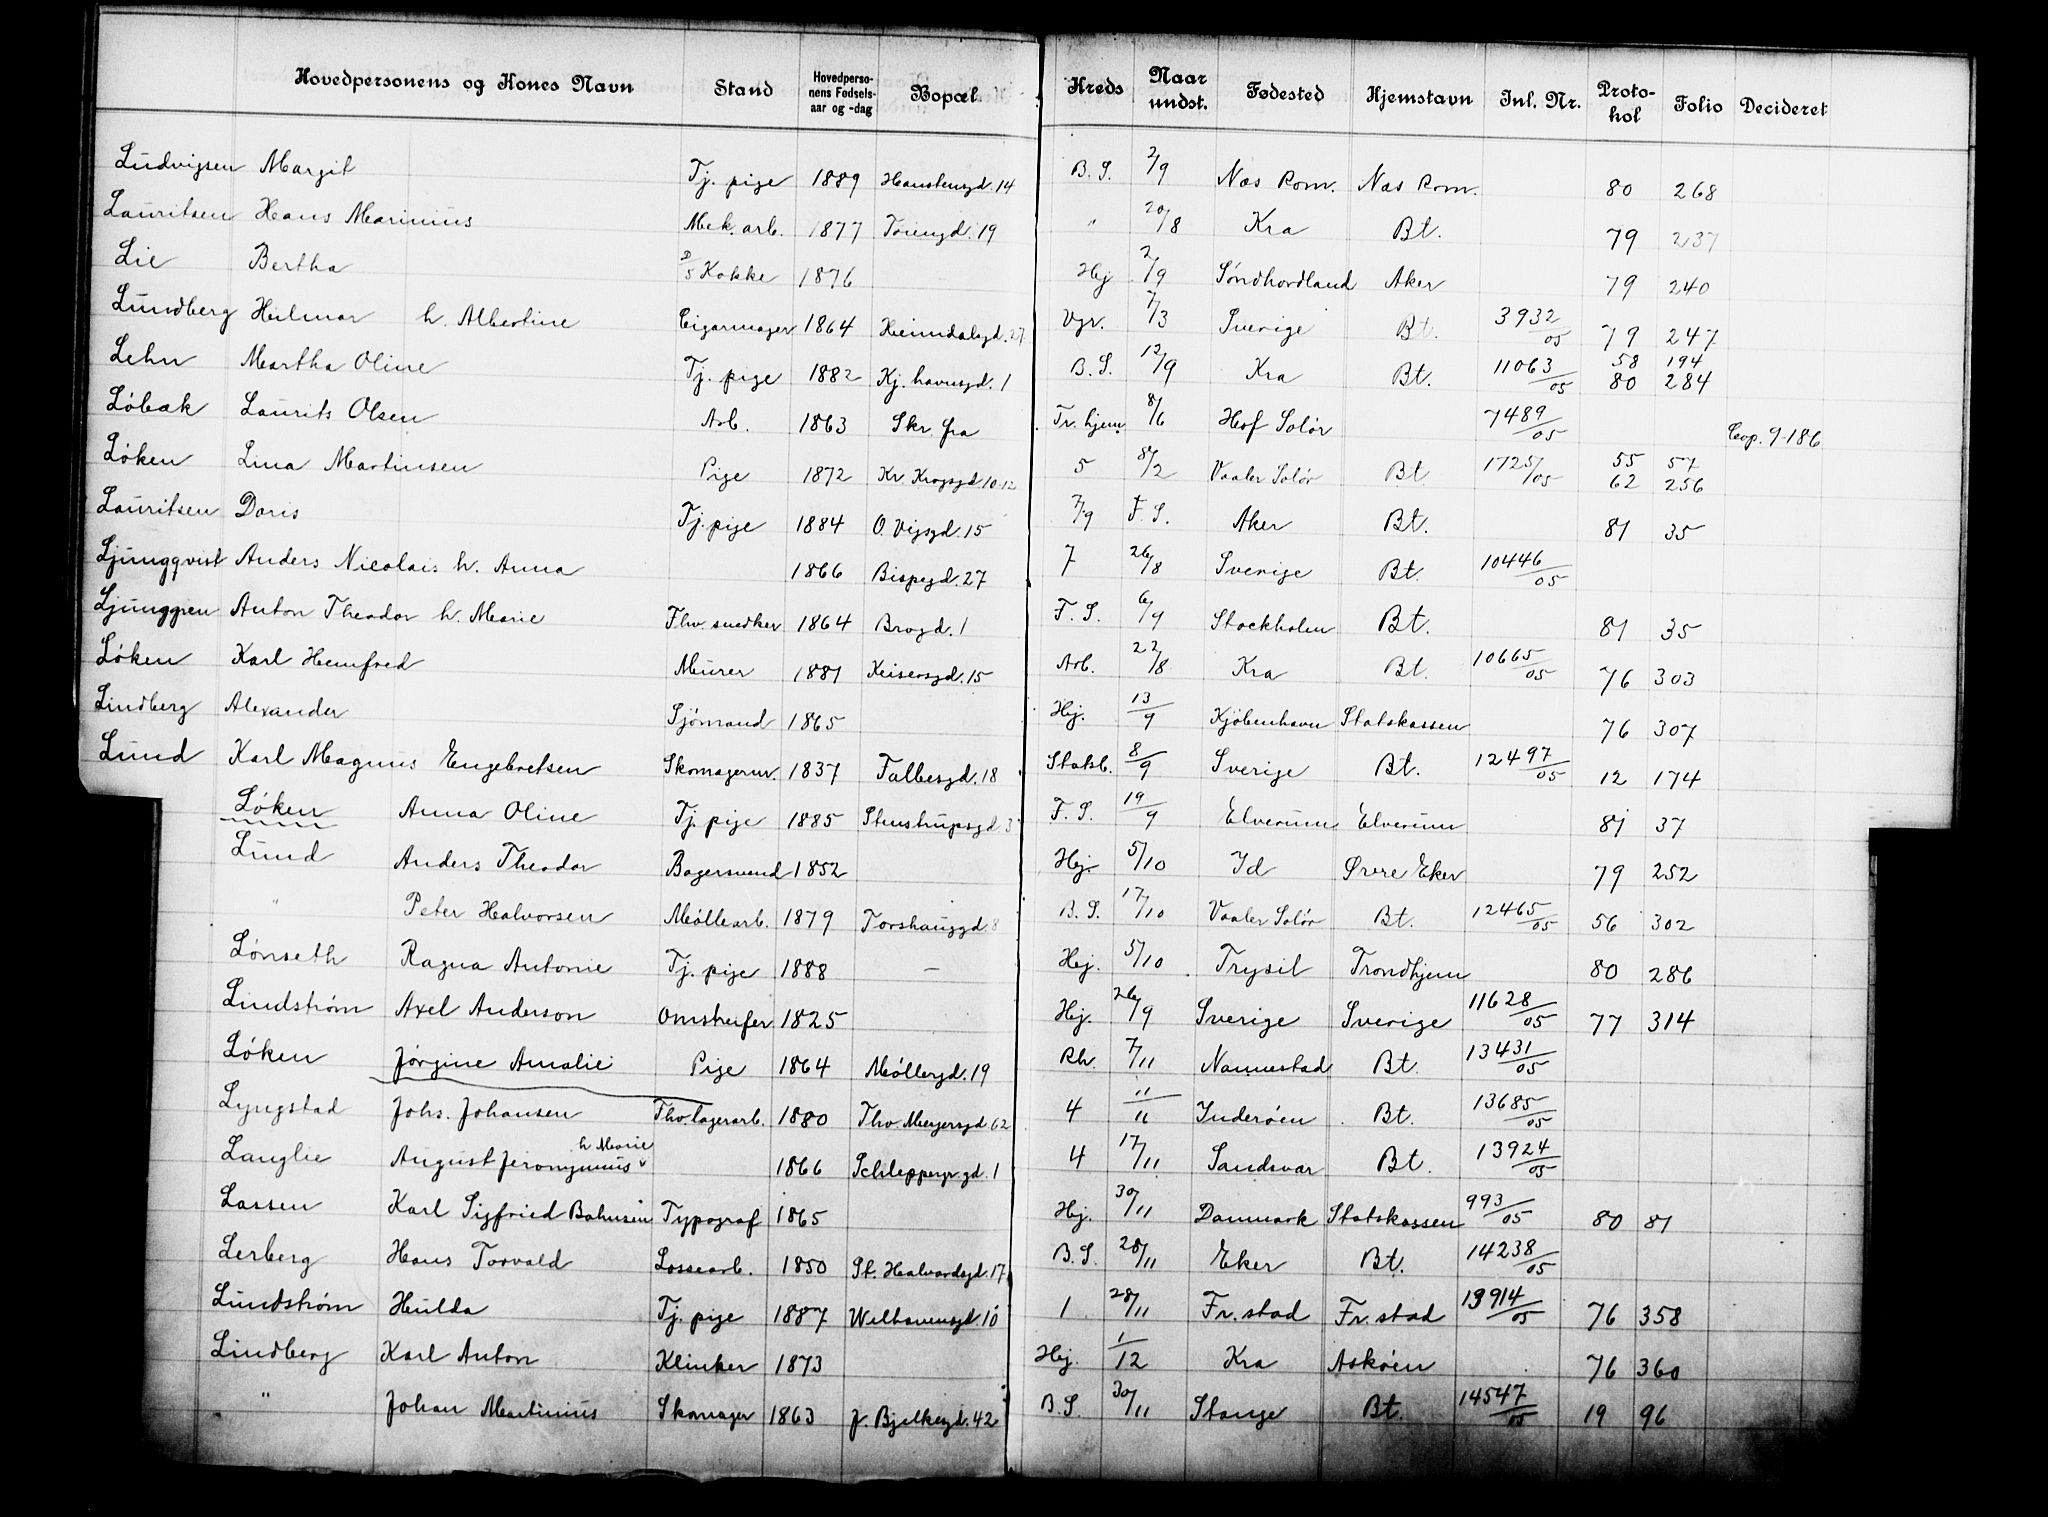 Hovedpersonens og Kones Navn Stand Hovedpersonens Fødselsaar og -dag Bopæl. Kreds Naar undst. Fødested Hjemstavn Inl. Nr. Protokol Folio Decideret
Ludvigsen Margit Tj. pige 1889 Haustensgd. 14 B. S. 2/9 Næs Rom. Næs Rom. 80 268
Lauritsen Hans Marinius Mek. arb. 1877 Töiengd. 19 " 20/8 Kra Bt. 79 237
Lie Bertha Kokke 1876 Hej 2/9 Söndhordland Aker 79 240
Lundberg Hilmar h. Albertine Cigarmager 1864 Heimdalsgd. 27 Vgr. 7/3 Sverige Bt. 3932/05 79 247
Lehn Martha Oline Tj. pige 1882 Kj. havnsgd. 1 B. S. 12/9 Kra Bt. 11063/05 58 194 80 284
Löbak Laurits Olsen Arb. 1863 Skr. fra Tr. hjem 8/6 Hof Solör 7489/05 Cop. 9-186
Löken Lina Martinsen Pige 1872 Kr. Krogsgd 10-12 5 8/2 Vaaler Solör Bt. 1725/05 55 57 62 256
Lauritsen Doris Tj. pige 1884 O. Vojsgd. 15 7/9 F. S. Aker Bt. 81 35
Ljungqvist Anders Nicolais h. Anna 1866 Bispegd. 27 7 26/8 Sverige Bt. 10446/05
Ljunggren Anton Theodor h. Marie Fhv. snedker 1864 Brogd. 1 F. S. 6/9 Stockholm Bt. 81 35
Löken Karl Hemfred Murer 1881 Keisersgd. 15 Arb. 22/8 Kra Bt. 10665/05 76 303
Lindberg Alexander Sjömand 1865 Hej. 13/9 Kjöbenhavn Statskassen 76 307
Lund Karl Magnus Engebretsen Skomagerm. 1837 Falbesgd. 18 Statsb. 8/9 Sverige Bt. 12497/05 12 174
Löken Anna Oline Tj. pige 1885 Stenstrupsgd 3 F. S. 19/9 Elverum Elverum 81 37
Lund Anders Theodor Bagersvend 1852 Hej. 5/10 Id Övre Eker 79 252
" Peter Halvorsen Möllearb. 1879 Forshauggd. 8 B. S. 17/10 Vaaler Solör Bt. 12465/05 56 302
Lönseth Ragna Antonie Tj. pige 1888 — Hej. 5/10 Trysil Trondhjem 80 286
Lindström Axel Anderson Omstreifer 1825 Hej. 26/9 Sverige Sverige 11628/05 77 314
Löken Jörgine Amalie Pige 1864 Möllergd. 19 Rh. 7/11 Nannestad Bt. 13431/05
Lyngstad Johs. Johansen Fhv. lagerarb. 1880 Thv. Meyersgd 62 4 11/11 Inderöen Bt. 13685/05
Langlie August Jeronymus h Marie 1866 Schleppegr. gd. 1 4 17/11 Sandsvær Bt. 13924/05
Lassen Karl Sigfried Bahnsen Typograf 1865 Hej. 30/11 Danmark Statskassen 993/05 80 81
Lerberg Hans Torvald Lossearb. 1850 St. Halvardsgd. 17 B. S. 28/11 Eker Bt. 14238/05
Lundström Hulda Tj. pige 1887 Welhavensgd. 10 1 28/11 Fr. stad Fr. stad 13914/05 76 358
Lindberg Karl Anton Klinker 1873 Hej. 1/12 Kra Asköen 76 360
" Johan Martinius Skomager 1863 J. Bjelkesgd. 42 B. S. 30/11 Stange Bt. 14547/05 19 96